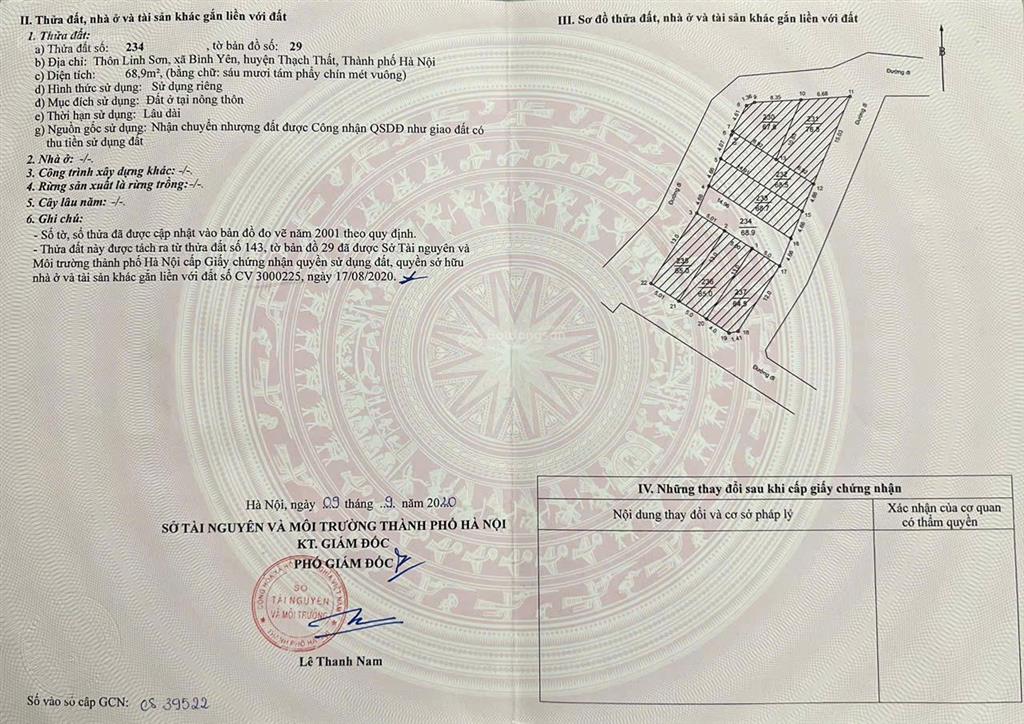 II. Thửa đất, nhà ở và tài sản khác gắn liền với đất
1. Thửa đất:
a) Thửa đất số: 234 , tờ bản đồ số: 29
b) Địa chỉ: Thôn Linh Sơn, xã Bình Yên, huyện Thạch Thất, Thành phố Hà Nội
c) Diện tích: 68,9m², (bằng chữ: sáu mươi tám phẩy chín mét vuông)
d) Hình thức sử dụng: Sử dụng riêng
đ) Mục đích sử dụng: Đất ở tại nông thôn
e) Thời hạn sử dụng: Lâu dài
g) Nguồn gốc sử dụng: Nhận chuyển nhượng đất được Công nhận QSDĐ như giao đất có
thu tiền sử dụng đất
2. Nhà ở: -/-.
3. Công trình xây dựng khác: -/-.
4. Rừng sản xuất là rừng trồng:-/-.
5. Cây lâu năm: -/-.
6. Ghi chú:
- Số tờ, số thửa đã được cập nhật vào bản đồ đo vẽ năm 2001 theo quy định.
- Thửa đất này được tách ra từ thửa đất số 143, tờ bản đồ 29 đã được Sở Tài nguyên và
Môi trường thành phố Hà Nội cấp Giấy chứng nhận quyền sử dụng đất, quyền sở hữu
nhà ở và tài sản khác gắn liền với đất số CV 3000225, ngày 17/08/2020.
Hà Nội, ngày 09 tháng 9 năm 2020
SỞ TÀI NGUYÊN VÀ MÔI TRƯỜNG THÀNH PHỐ HÀ NỘI
KT. GIÁM ĐỐC
PHÓ GIÁM ĐỐC
SỞ
TÀI NGUYÊN
VÀ MÔI TRƯỜNG
THÀNH PHỐ HÀ NỘI
Lê Thanh Nam
Số vào sổ cấp GCN: CS 39522
III. Sơ đồ thửa đất, nhà ở và tài sản khác gắn liền với đất
B
Đường đi
Đường đi
1.36 9 8.35 10 6.68 11
4.51
230
67.8
231
76.5
15.03
4.07
232
68.5
12
4.68
233
68.7
4.68
15
4
14.96
234
68.9
4.68
16
Đường đi
3
5.01
2
5.0
4.68
17
13.0
235
65.0
13.0
236
65.0
237
64.5
12.0
22
5.01
21
5.0
20
4.0
19
1.41
18
Đường đi
IV. Những thay đổi sau khi cấp giấy chứng nhận
Nội dung thay đổi và cơ sở pháp lý
Xác nhận của cơ quan
có thẩm quyền